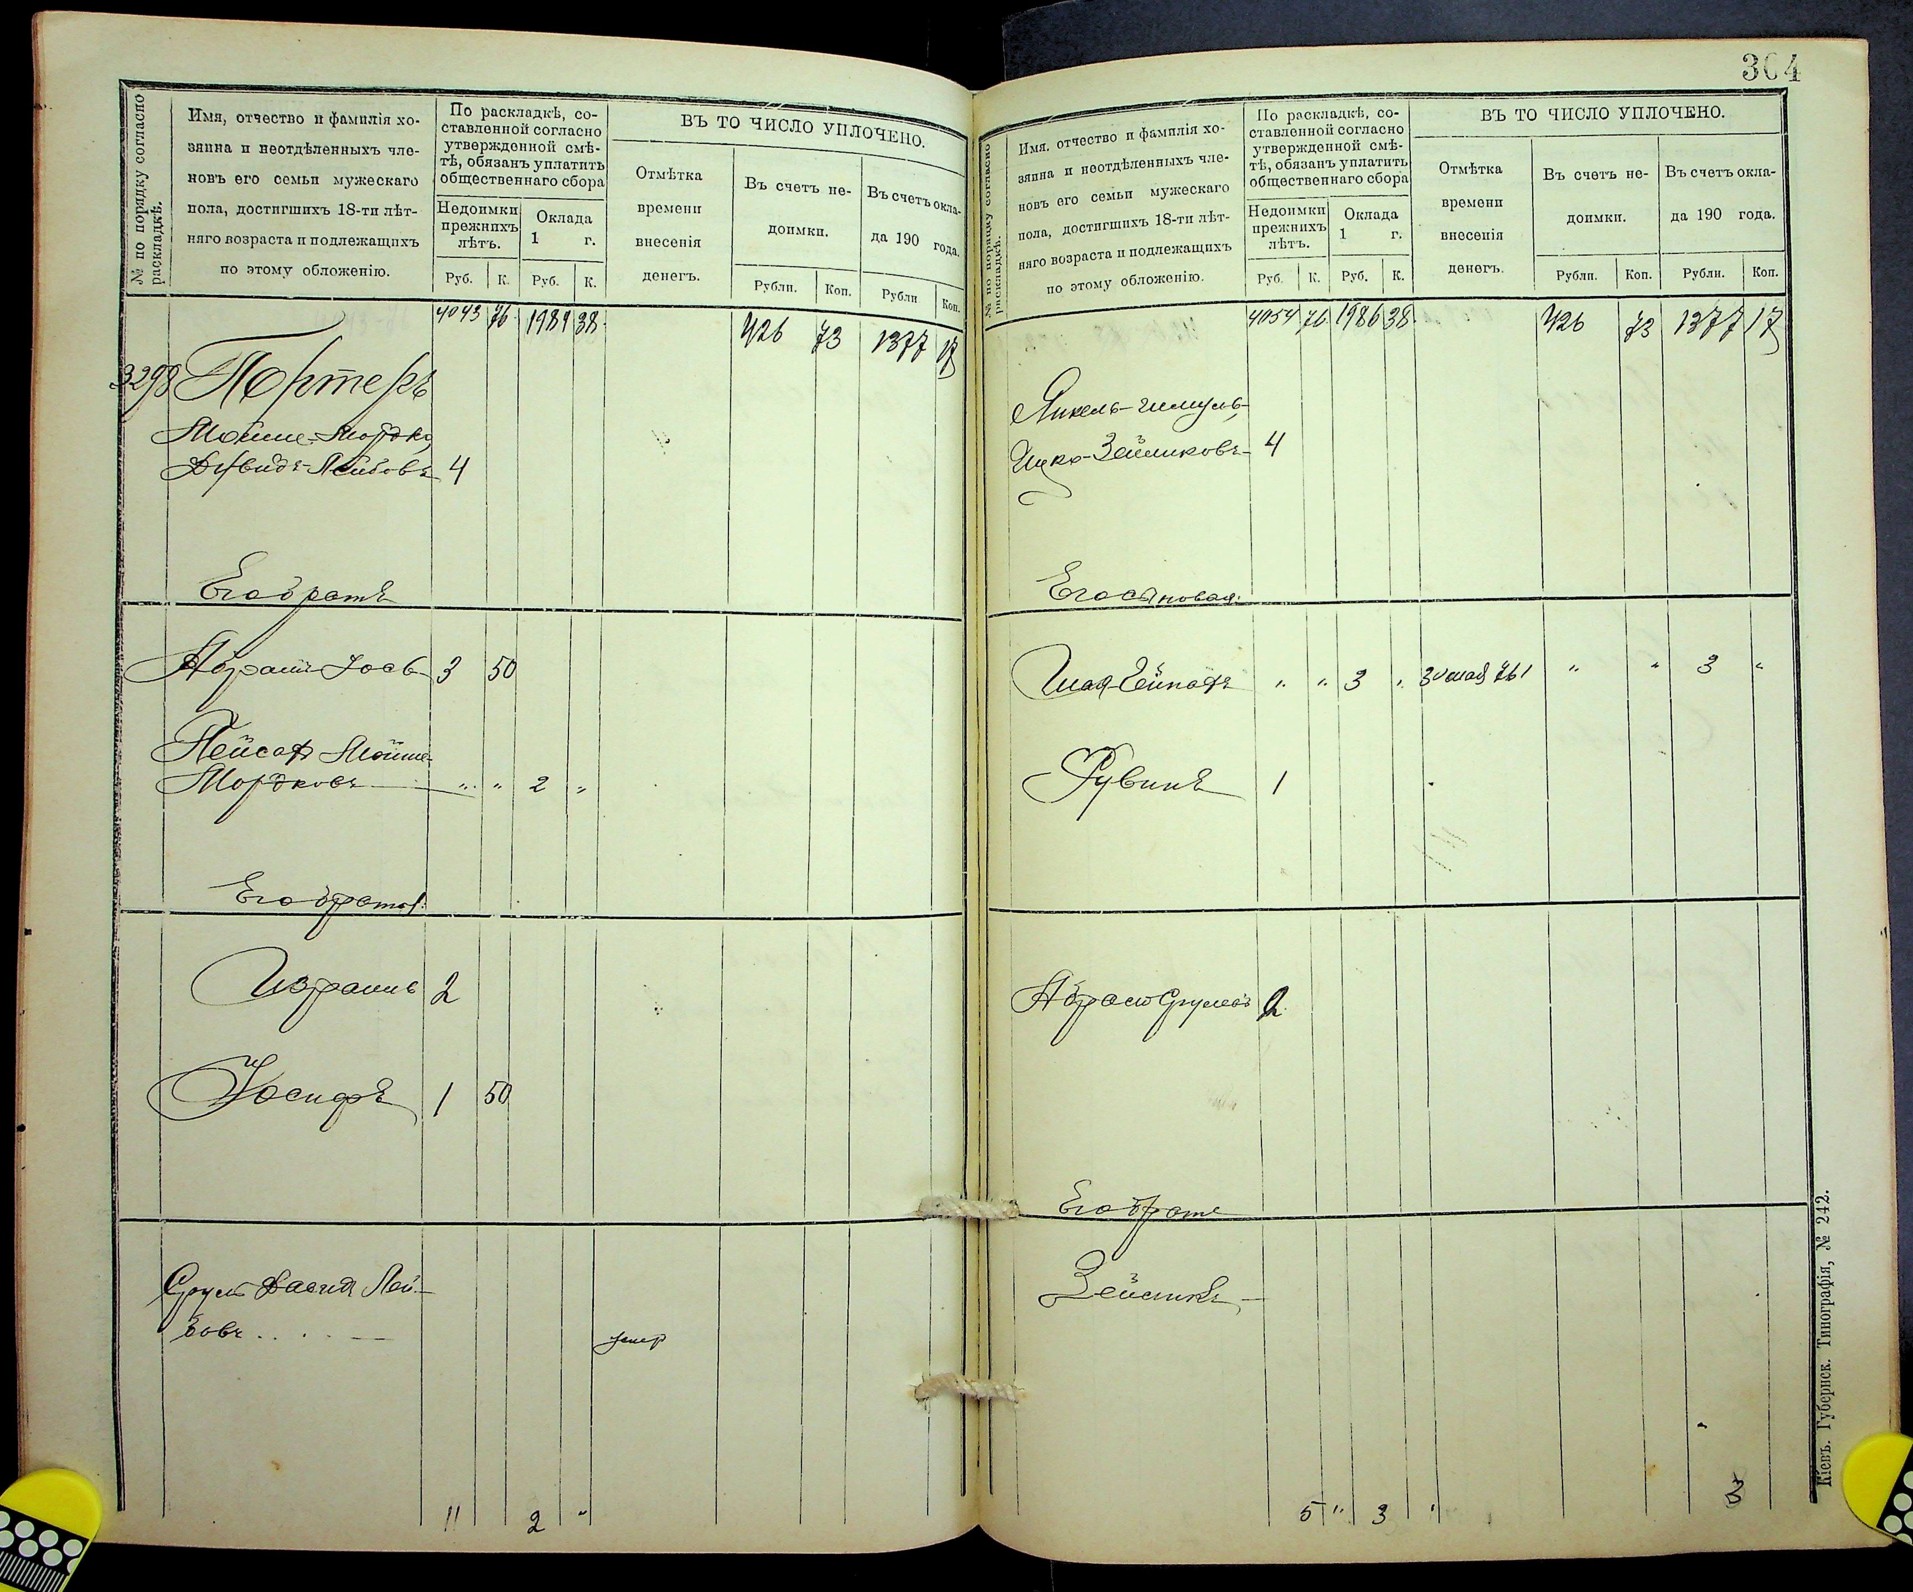 364
№ по порядку согласно
раскладкѣ.
Имя, отчество и фамилія хо-
зяина и неотдѣленныхъ чле-
новъ его семьи мужескаго
пола, достигшихъ 18-ти лѣт-
няго возраста и подлежащихъ
по этому обложенію.
По раскладкѣ, со-
ставленной согласно
утвержденной смѣ-
тѣ, обязанъ уплатить
общественнаго сбора
Недоимки
прежнихъ
лѣтъ.
Оклада
1 г.
Руб. К. Руб. К.
ВЪ ТО ЧИСЛО УПЛОЧЕНО.
Отмѣтка
времени
внесенія
денегъ.
Въ счетъ не-
доимки.
Въ счетъ окла-
да 190 года.
Рубли. Коп. Рубли Коп.
4043 76 1981 38 426 73 1377 17
3298 Портеръ
Мойше-Мордко,
Дувидъ-Лейбовъ 4
Его братъ
Абрамъ Іось 3 50
Пейсах Мойше-
Мордковъ " " 2 "
Его братья:
Израиль 2
Іосифъ 1 50
Сруль Лей-
бовъ
умер
11 2 "
№ по порядку согласно
раскладкѣ.
Имя, отчество и фамилія хо-
зяина и неотдѣленныхъ чле-
новъ его семьи мужескаго
пола, достигшихъ 18-ти лѣт-
няго возраста и подлежащихъ
по этому обложенію.
По раскладкѣ, со-
ставленной согласно
утвержденной смѣ-
тѣ, обязанъ уплатить
общественнаго сбора
Недоимки
прежнихъ
лѣтъ.
Оклада
1 г.
Руб. К. Руб. К.
ВЪ ТО ЧИСЛО УПЛОЧЕНО.
Отмѣтка
времени
внесенія
денегъ.
Въ счетъ не-
доимки.
Въ счетъ окла-
да 190 года.
Рубли. Коп. Рубли. Коп.
4054 76 1986 38 426 73 1377 17
Янкель-Шмуль-
Ицко-Зейликовъ 4
Его сыновья:
Шая " " 3 " 30 мая 761 " " 3 "
Рувинъ 1
Абрам Срулевъ 2
Его братъ
Зейликъ
5 " 3 " 3
Кіевъ. Губернск. Типографія, № 242.